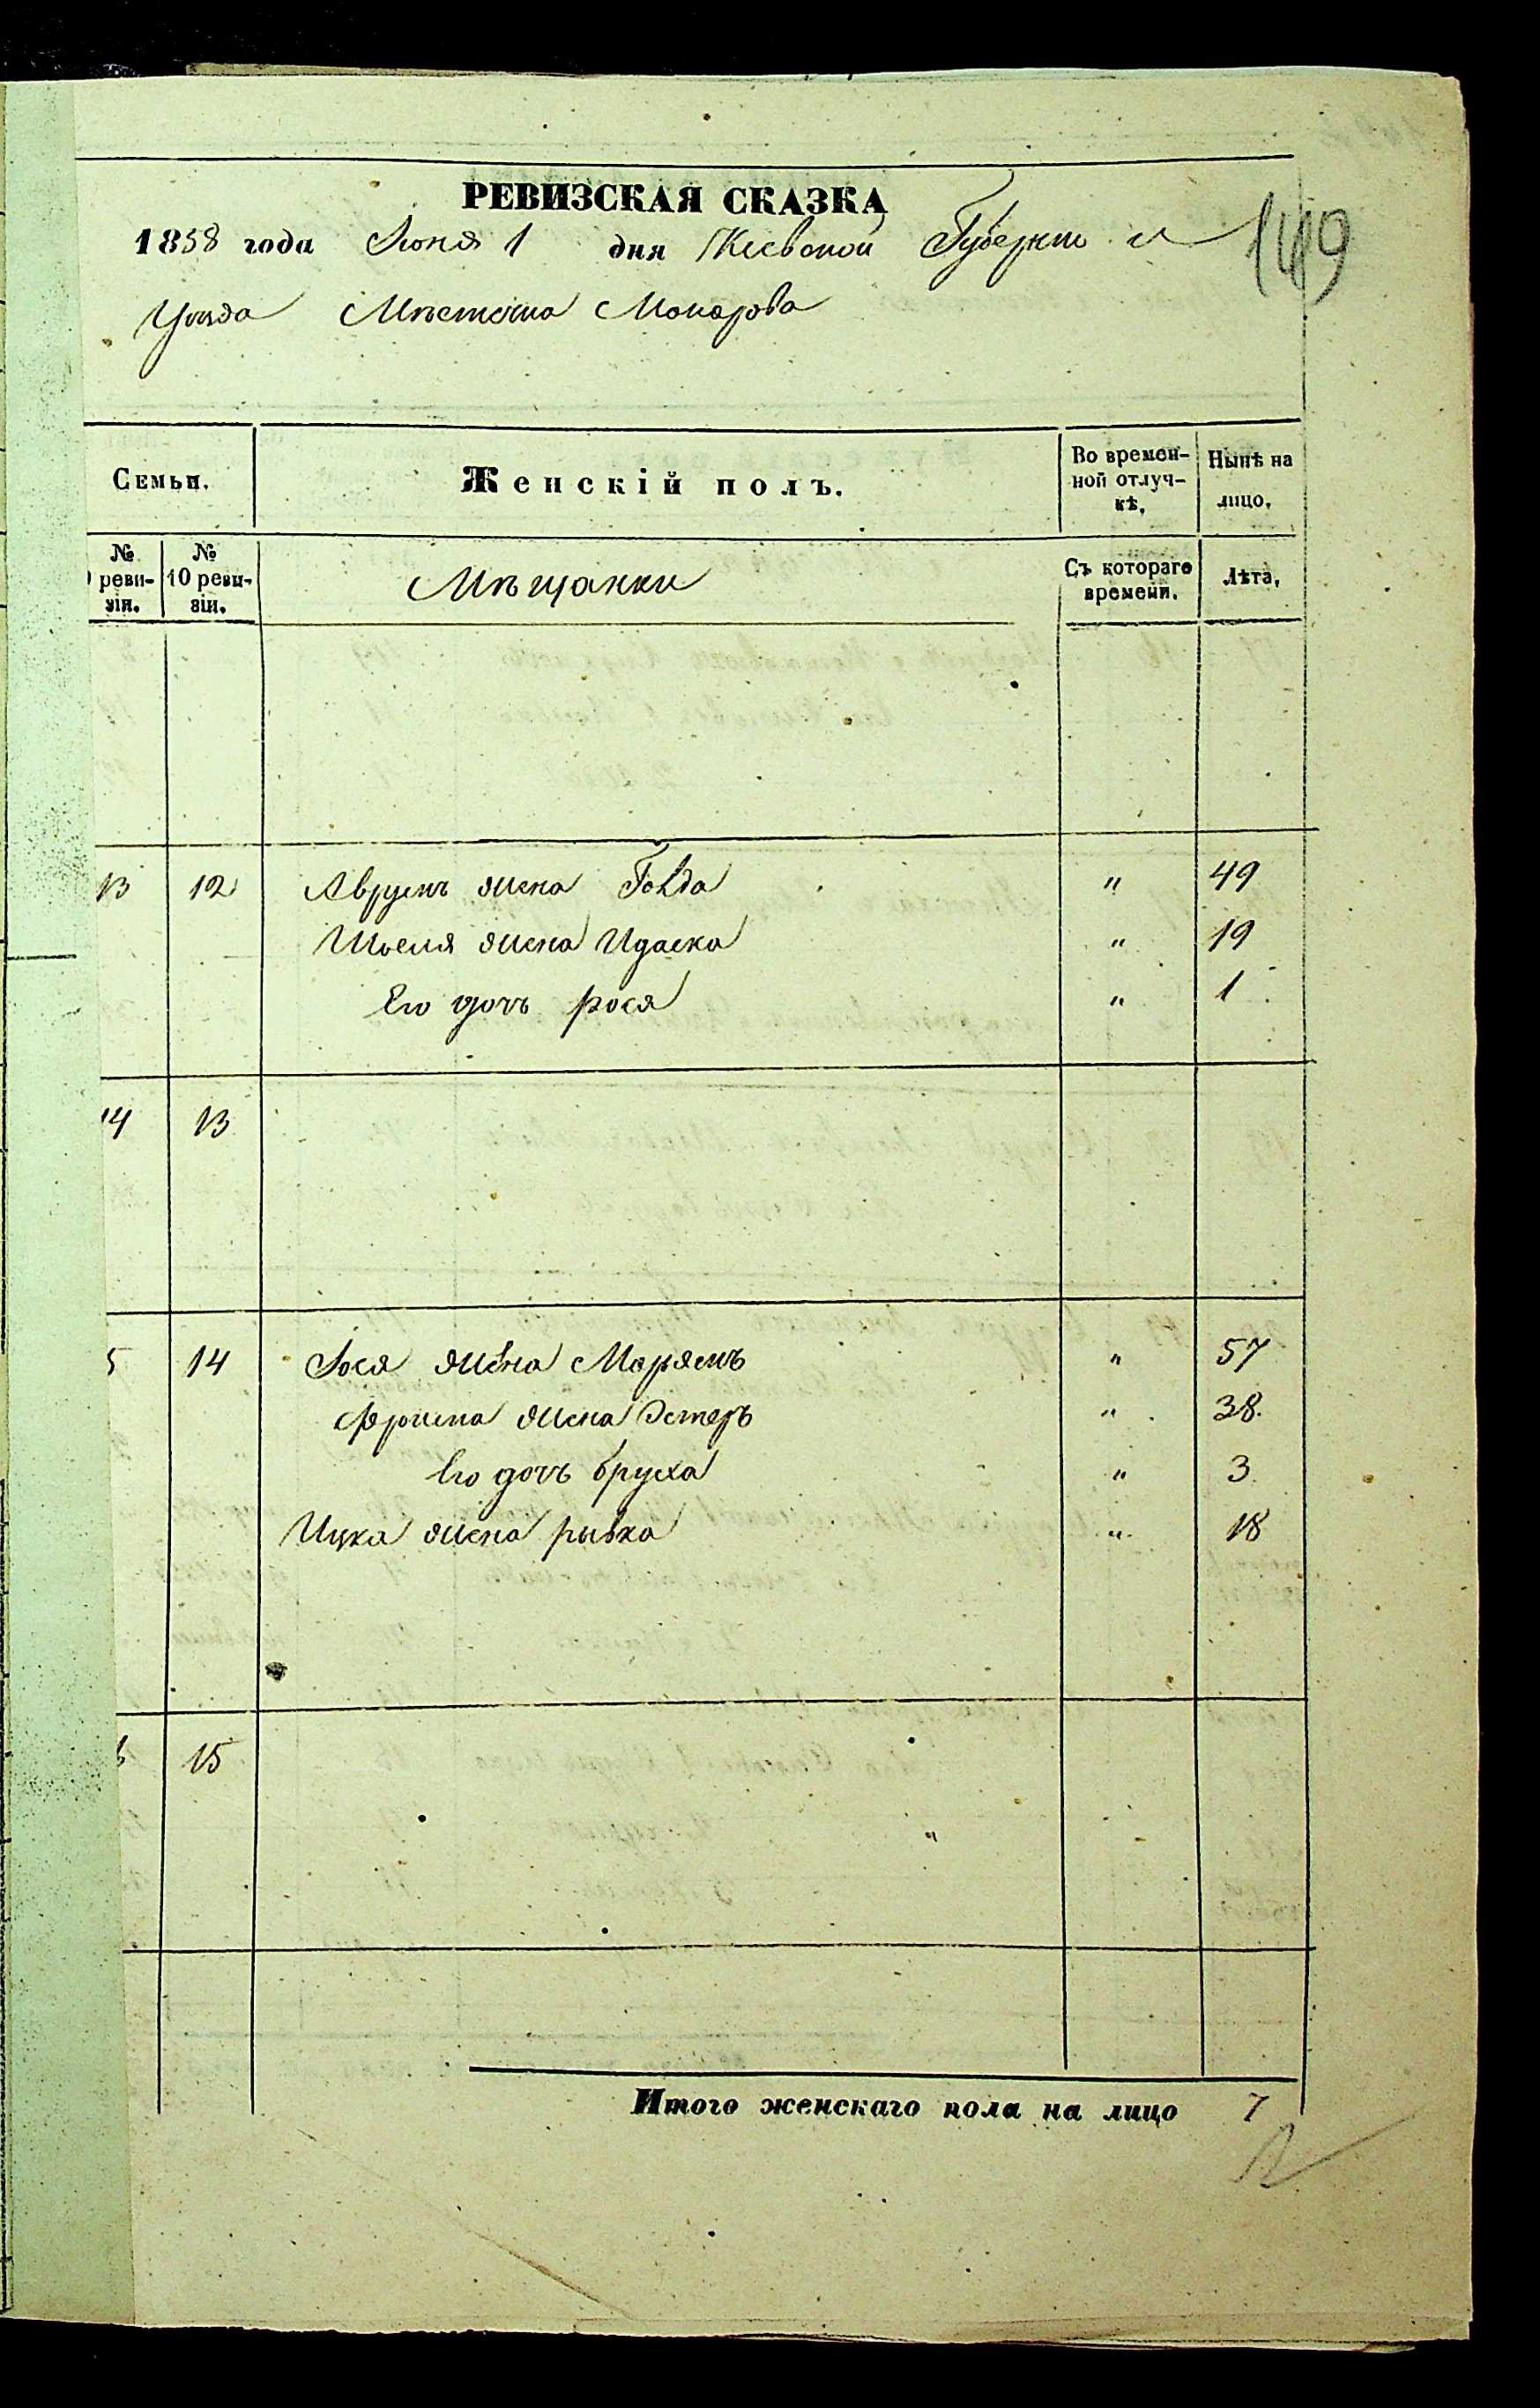 РЕВИЗСКАЯ СКАЗКА
1858 года Іюня 1 дня Кіевской Губерніи и
149
Уѣзда Мѣстечка Макарова
Семьи.
Женскій полъ.
Во времен-
ной отлуч-
кѣ.
Нынѣ на
лицо.
№
реви-
зіи.
№
10 реви-
зіи.
Мѣщанки
Съ котораго
времени.
Лѣта.
13 12 Аврумъ жена Голда " 49
жена " 19
Его дочь рося " 1
14 13
5 14 Іося жена Марьемъ " 57
Фроима жена Эстеръ " 38.
Его дочь бруха " 3
Ицка жена рывка " 18
15
Итого женскаго пола на лицо 7